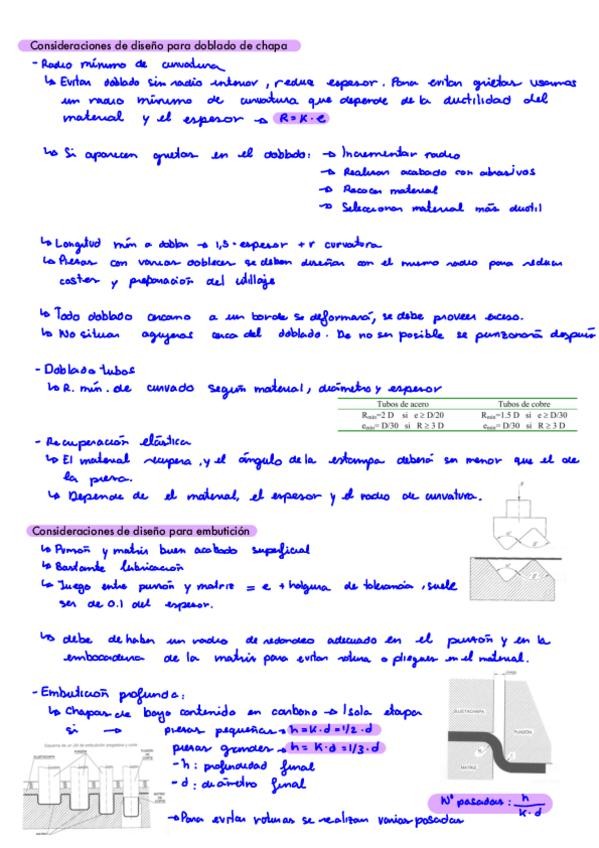 Consideraciones de diseño para doblado de chapa
- Radio mínimo de curvatura
↳ Evitar doblado sin radio interior, reduce espesor. Para evitar grietas usamos
un radio mínimo de curvatura que depende de la ductilidad del
material y el espesor → R = K · e
↳ Si aparecen grietas en el doblado: → Incrementar radio
→ Realizar acabado con abrasivos
→ Recocer material
→ Seleccionar material más ductil
↳ Longitud mín a doblar → 1,5 · espesor + r curvatura
↳ Piezas con varios dobleces se deben diseñar con el mismo radio para reducir
costes y preparación del utillaje
↳ Todo doblado cercano a un borde se deformará, se debe proveer exceso.
↳ No situar agujeros cerca del doblado. De no ser posible se punzonará después
- Doblado tubos
↳ R. mín. de curvado según material, diámetro y espesor
Tubos de acero Tubos de cobre
Rmin=2 D si e ≥ D/20 Rmin=1.5 D si e ≥ D/30
emin= D/30 si R ≥ 3 D emin= D/30 si R ≥ 3 D
- Recuperación elástica
↳ El material recupera, y el ángulo de la estampa deberá ser menor que el de
la pieza.
↳ Depende de el material, el espesor y el radio de curvatura.
Consideraciones de diseño para embutición
↳ Punzón y matriz buen acabado superficial
↳ Bastante lubricación
↳ Juego entre punzón y matriz = e + holgura de tolerancia, suele
ser de 0.1 del espesor.
↳ debe de haber un radio de redondeo adecuado en el punzón y en la
embocadura de la matriz para evitar rotura o pliegues en el material.
- Embutición profunda:
↳ Chapas de bajo contenido en carbono → 1 sola etapa
si → piezas pequeñas → h = K · d = 1/2 · d
piezas grandes → h = K · d = 1/3 · d
- h: profundidad final
- d: diámetro final
→ Para evitar roturas se realizan varias pasadas
SUJETACHAPA
PUNZÓN
MATRIZ
Nº pasadas: h / K · d